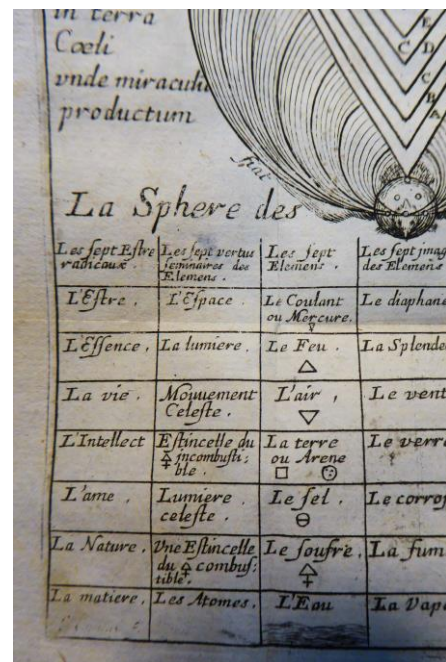 in terra
Cœli
vnde miraculu
productum
E
D
C
C
B
A
fiat
La Sphere des
Les sept Estre radicaux.
Les sept vertus seminaires des Elemens.
Les sept Elemens.
Les sept jmag des Elemens
L'Estre.
L'Espace.
Le Coulant ou Mercure.
Le diaphane
L'Essence.
La lumiere.
Le Feu.
La Splende
La vie.
Mouuement Celeste.
L'air,
Le vent
L'Intellect
Estincelle du jncombusti: ble.
La terre ou Arene
Le verre
L'ame.
Lumiere celeste.
Le sel.
Le corros
La Nature.
Vne Estincelle du combus: tible.
Le soufre.
La fum
La matiere.
Les Atomes.
L'Eau
La Vape